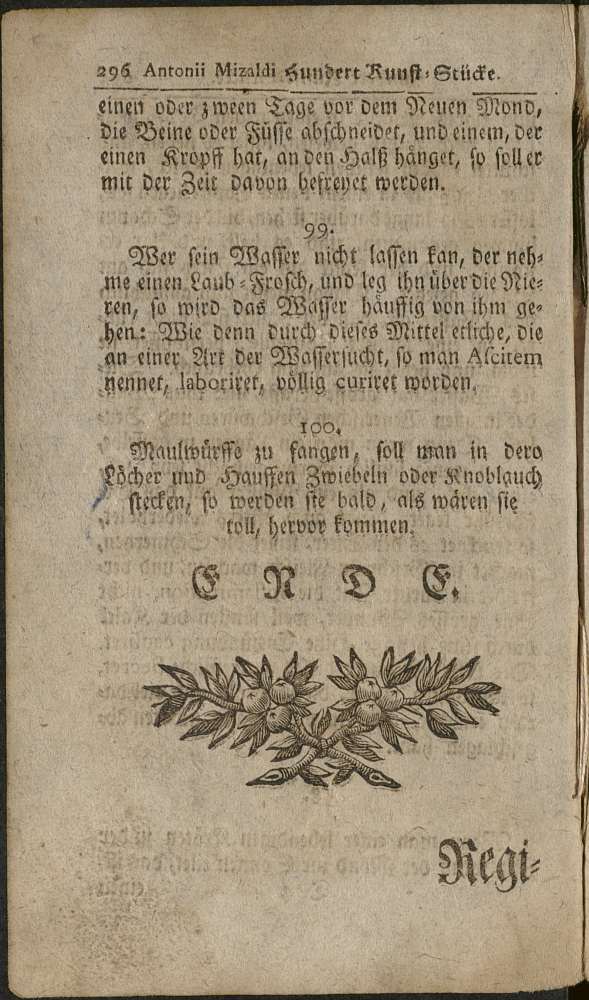 296 Antonii Mizaldi Hundert Kunst-Stücke.
einen oder zween Tage vor dem Neuen Mond,
die Beine oder Füsse abschneidet, und einem, der
einen Kropff hat, an den Halß hänget, so soll er
mit der Zeit davon befreyet werden.
99.
Wer sein Wasser nicht lassen kan, der neh-
me einen Laub-Frosch, und leg ihn über die Nie-
ren, so wird das Wasser häuffig von ihm ge-
hen: Wie denn durch dieses Mittel etliche, die
an einer Art der Wassersucht, so man Ascitem
nennet, laboriret, völlig curiret worden.
100.
Maulwürffe zu fangen, soll man in dero
Löcher und Hauffen Zwiebeln oder Knoblauch
stecken, so werden sie bald, als wären sie
toll, hervor kommen.
E N D E.
Regi-